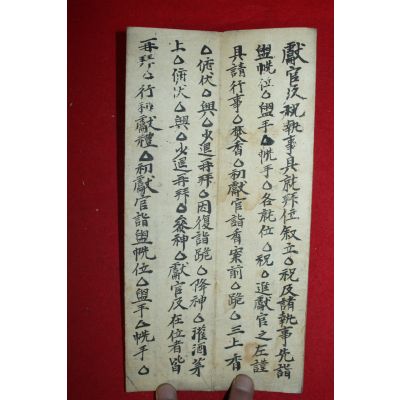 獻官及祝執事具就拜位敍立△祝及諸執事先詣
盥帨位△盥手△帨手△各就位△祝△進獻官之左謹
具請行事△焚香△初獻官詣香案前△跪△三上香
△俯伏△興△少退再拜△因復詣跪△降神△灌酒茅
上△俯伏△興△少退再拜△參神△獻官及在位者皆
再拜△行初獻禮△初獻官詣盥帨位△盥手△帨手△